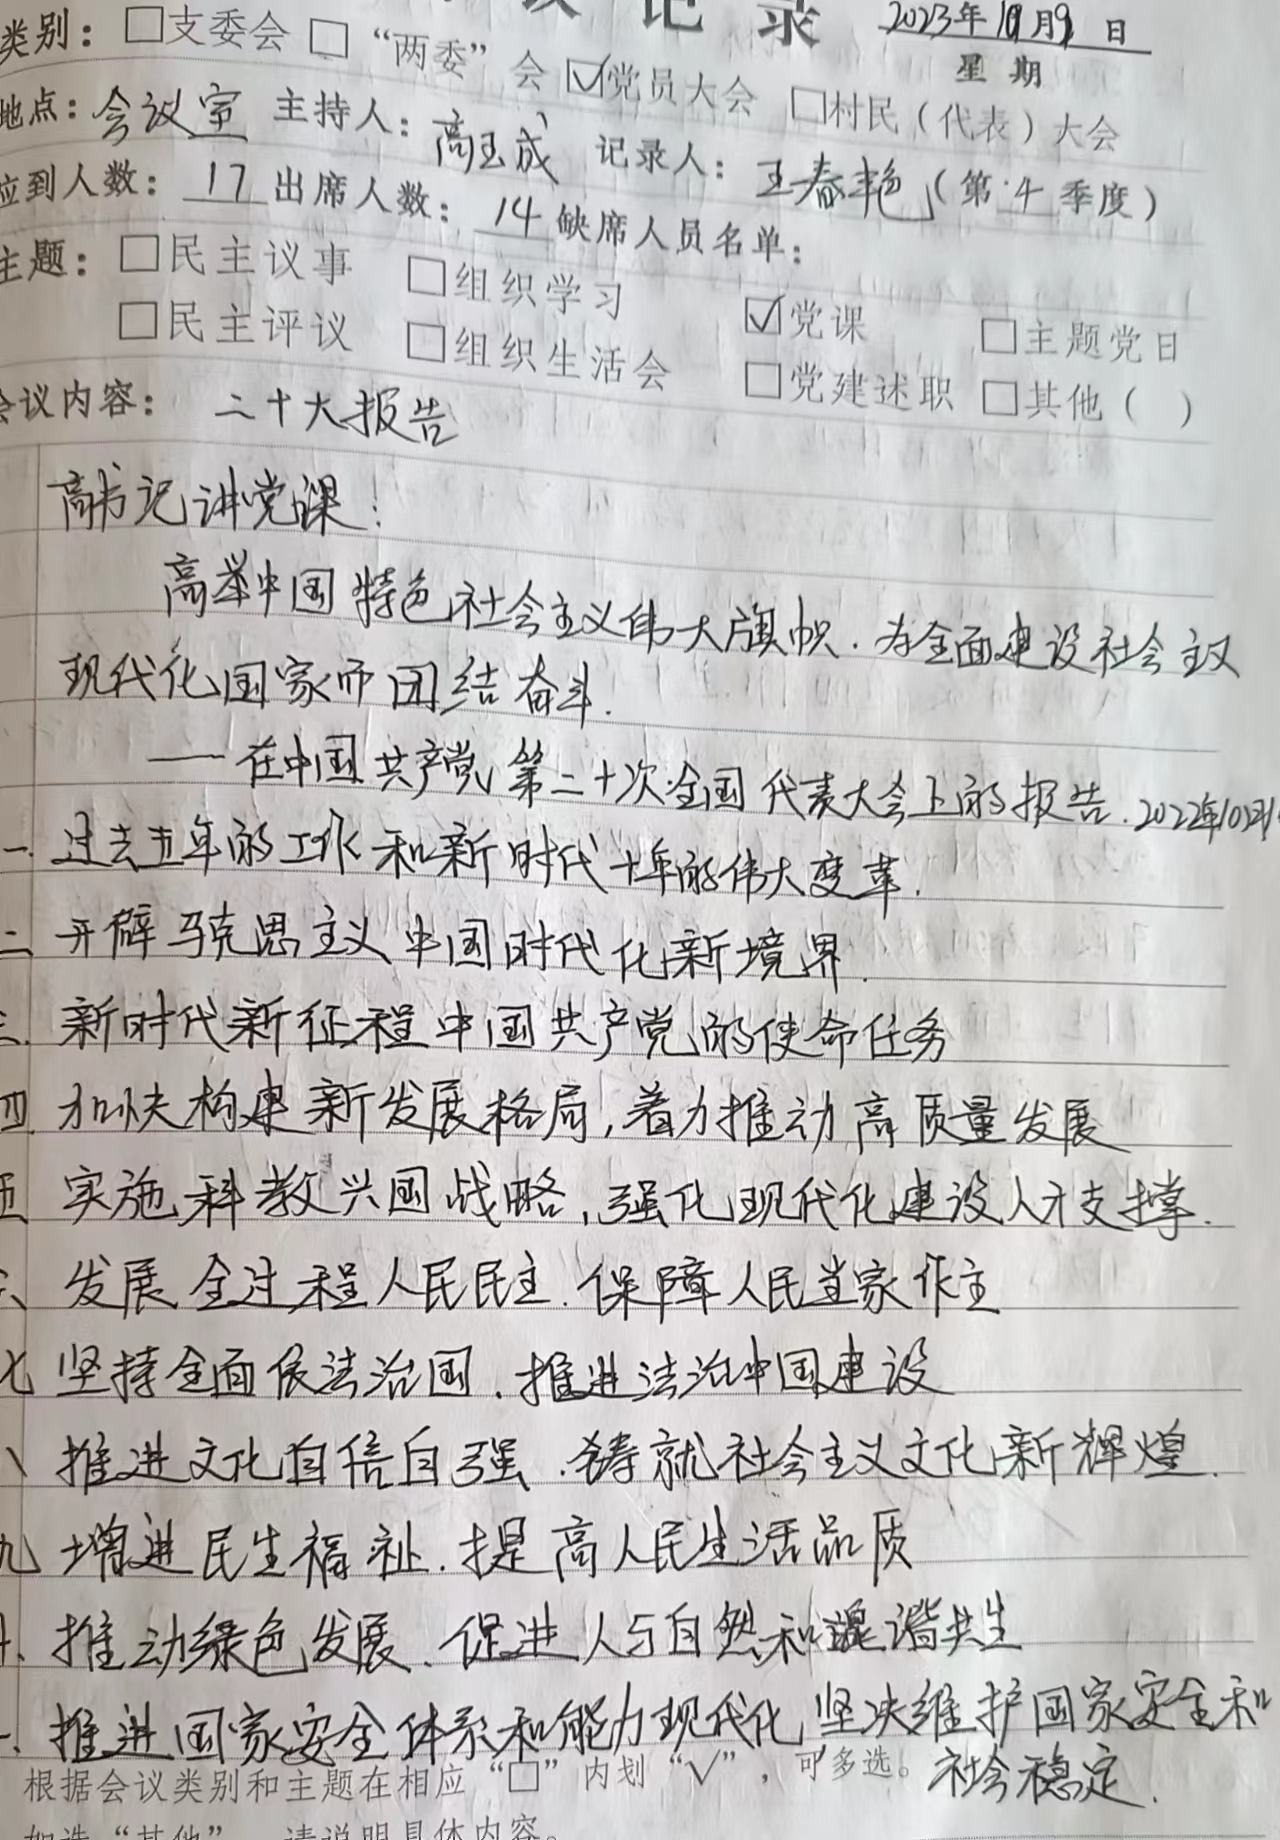 议记录
2023年10月9日
星期
类别：□支委会 □“两委”会 ☑党员大会 □村民（代表）大会
地点：会议室 主持人：高玉成 记录人：王春艳（第4季度）
应到人数：17 出席人数：14 缺席人员名单：
主题：□民主议事 □组织学习 ☑党课 □主题党日
□民主评议 □组织生活会 □党建述职 □其他（ ）
会议内容：二十大报告
高书记讲党课：
高举中国特色社会主义伟大旗帜.为全面建设社会主义
现代化国家而团结奋斗.
——在中国共产党第二十次全国代表大会上的报告.2022年10月1
一.过去五年的工作和新时代十年的伟大变革.
二 开辟马克思主义中国时代化新境界.
三.新时代新征程中国共产党的使命任务
四 加快构建新发展格局,着力推动高质量发展
五 实施科教兴国战略,强化现代化建设人才支撑.
六、发展全过程人民民主.保障人民当家作主
七 坚持全面依法治国.推进法治中国建设
八 推进文化自信自强.铸就社会主义文化新辉煌.
九 增进民生福祉.提高人民生活品质
十.推动绿色发展、促进人与自然和谐共生
一.推进国家安全体系和能力现代化,坚决维护国家安全和
社会稳定.
根据会议类别和主题在相应“□”内划“√”，可多选。
如选“其他”，请说明具体内容。